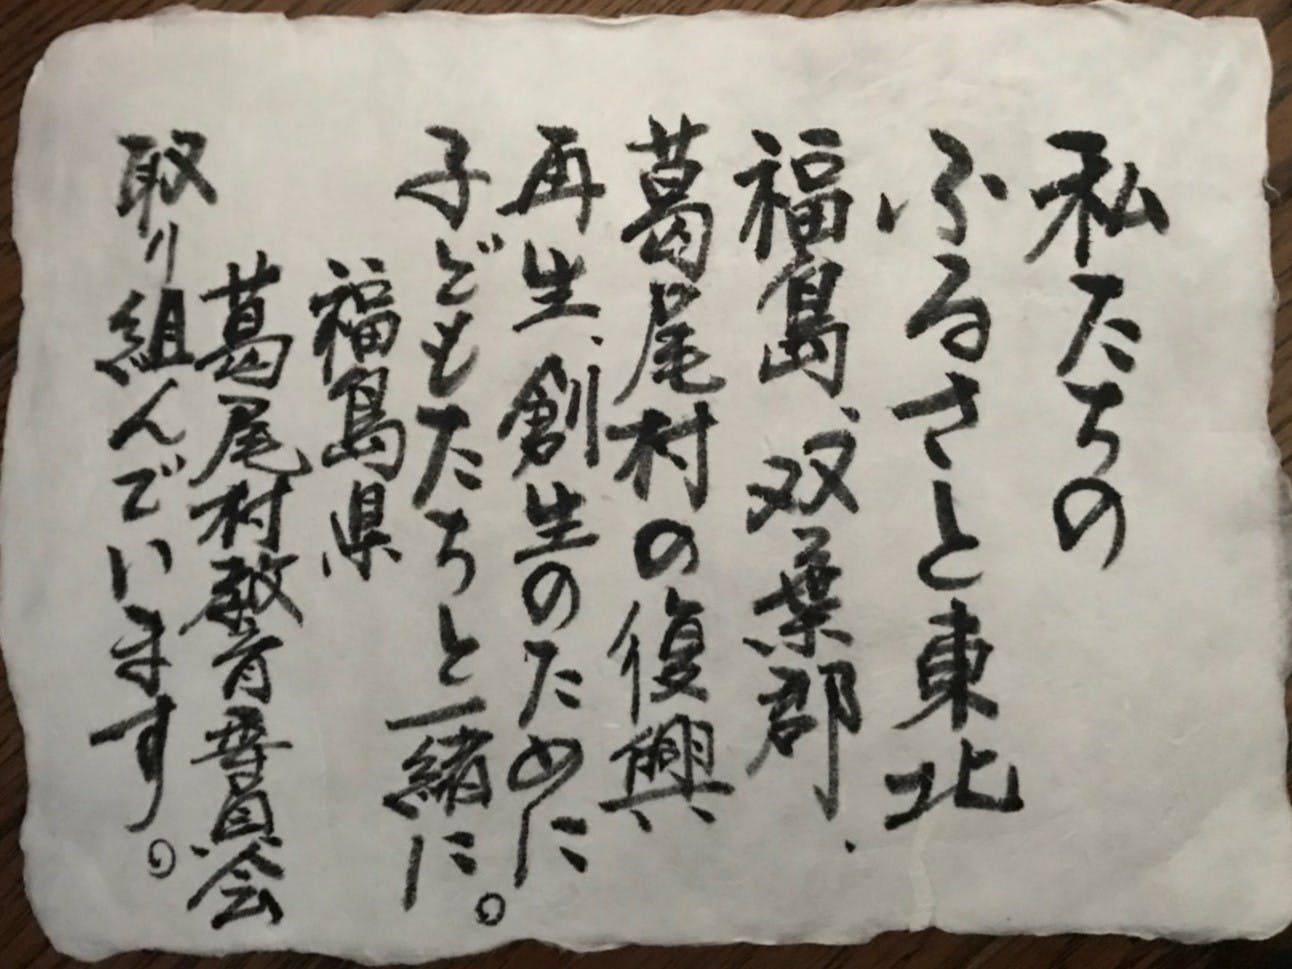 私たちの
ふるさと東北
福島、双葉郡、
葛尾村の復興
再生、創生のために
子どもたちと一緒に。
福島県
葛尾村教育委員会
取り組んでいます。